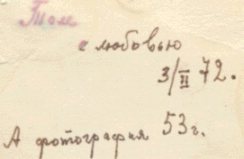 Толе
с любовью
3/II 72.
А фотография 53г.